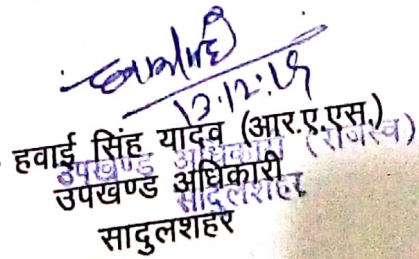 हवाई सिंह यादव (आर.ए.एस.)
उपखण्ड अधिकारी (राजस्व)
उपखण्ड अधिकारी
सादुलशहर
सादुलशहर